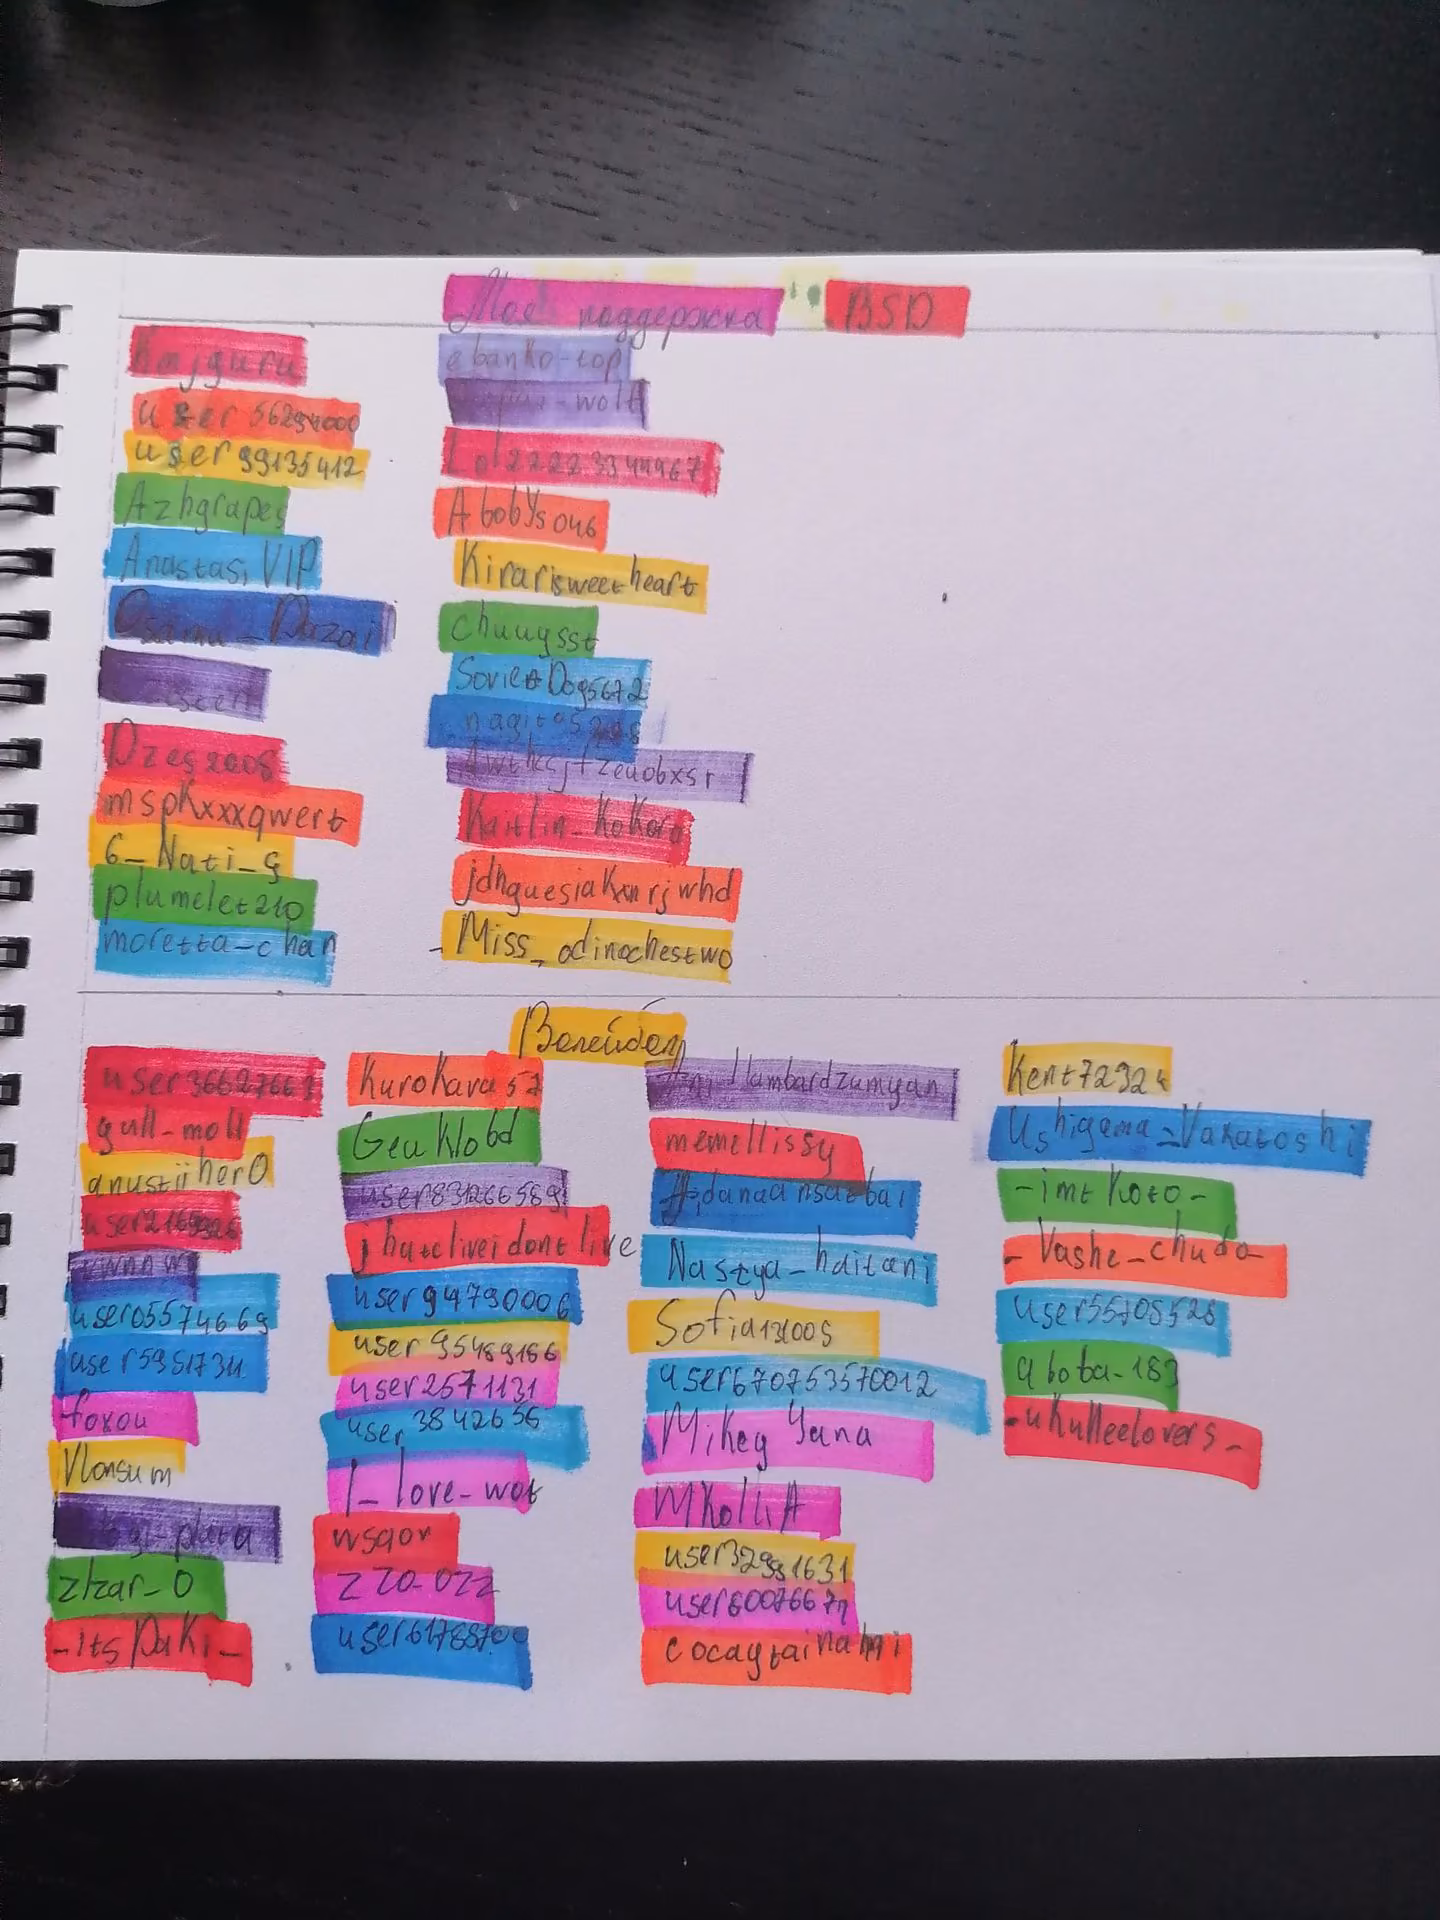 Моя поддержка : BSD
Kmjguru
user 56294000
user 99135412
Azhgrapes
Anastasi VIP
Osamu_Dazai
Dzes2008
mspKxxxqwert
6_Nati_g
plumelet210
moretta-chan
ebanko-top
-wolf
Lol22223344967
AbobYsoub
Kirarisweetheart
chuuysst
SovietDog5672
Kaitlin_KoKoro
jdhguesiaKxnrjwhd
-Miss_odinochestwo
Волейбол
user36627663
gull-moll
anustiiher0
user2169926
user05574669
user5951731
foxou
Vlonsum
zlzar-0
-Its paKi-
KuroKava57
GeuKlobd
user831266589
j hateliveidont live
user94790006
user95489186
user2571131
user3842656
I_love_wot
wsqor
zZ0-0zz
user61788700
Hambardzumyan
memellissy
Aidanaansatbai
Nastya-haitani
Sofia131005
user670753570012
Mikey Yana
MKolliA
user32991631
user60076677
cocaytainahni
Kent72324
Ushigama=Vakatoshi
-imt Koto-
-Vashe_chudo-
user55705528
aboba-183
-uKulleelovers-